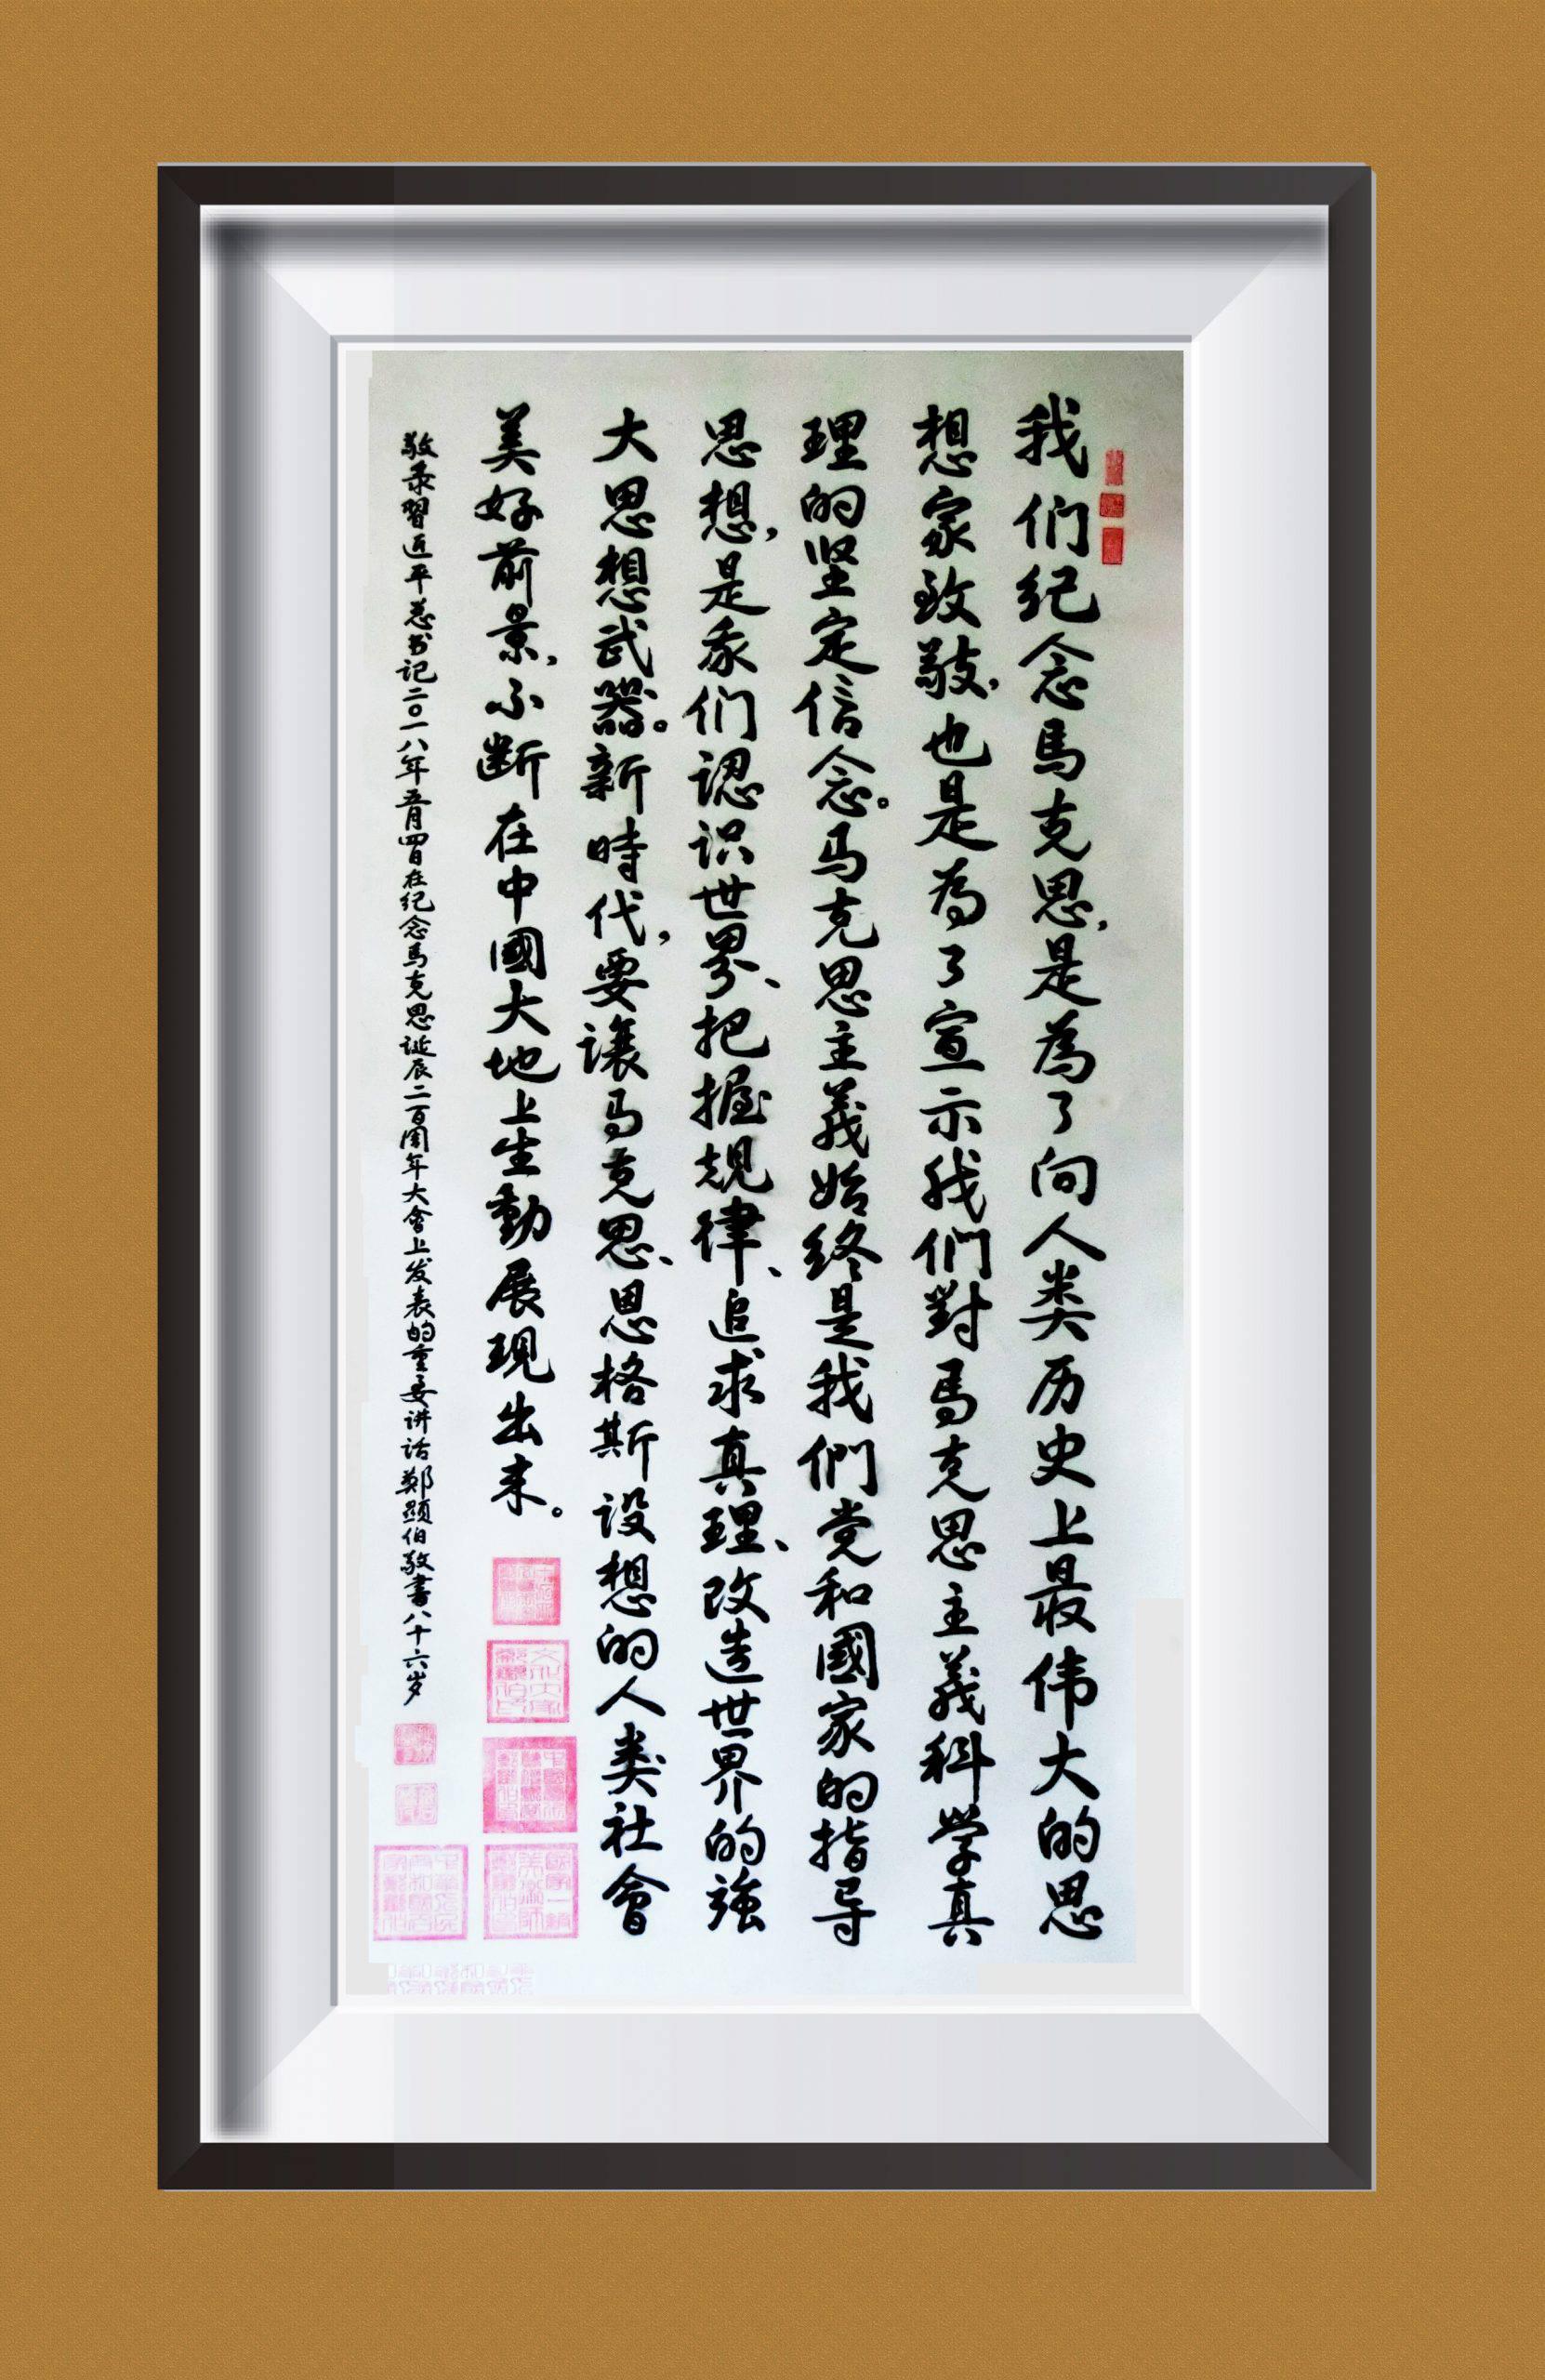 我们纪念馬克思，是為了向人类历史上最伟大的思
想家致敬，也是為了宣示我們對馬克思主義科学真
理的坚定信念。马克思主義始终是我們党和國家的指导
思想，是我们認识世界、把握規律、追求真理、改造世界的強
大思想武器。新時代，要讓马克思、恩格斯设想的人类社會
美好前景，不断在中國大地上生動展現出来。
敬录習近平总书记二〇一八年五月四日在纪念馬克思诞辰二百周年大會上发表的重要讲话鄭顕伯敬書八十六岁